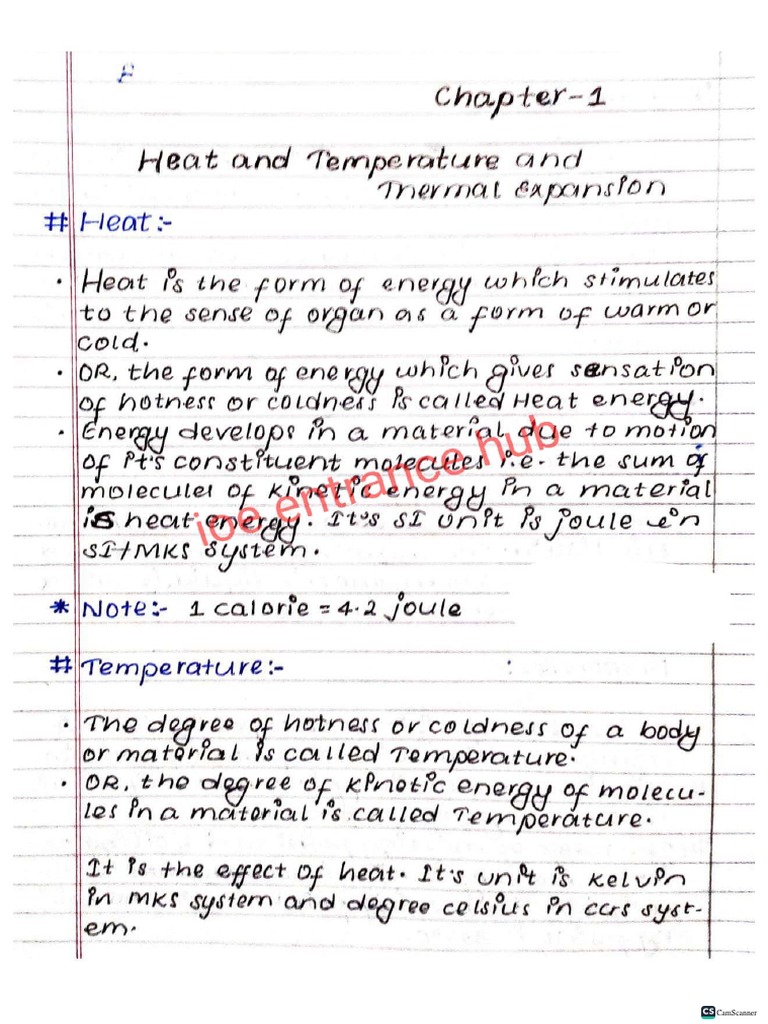 Chapter-1
Heat and Temperature and
Thermal Expansion
# Heat:-
• Heat is the form of energy which stimulates
to the sense of organ as a form of warm or
cold.
• OR, the form of energy which gives sensation
of hotness or coldness is called Heat energy.
• Energy develops in a material due to motion
of it's constituent molecules i.e. the sum of
molecules of kinetic energy in a material
is heat energy. It's SI unit is joule in
SI/MKS system.
ioe entrance hub
* Note:- 1 calorie = 4.2 joule
# Temperature:-
• The degree of hotness or coldness of a body
or material is called Temperature.
• OR, the degree of kinetic energy of molecu-
les in a material is called Temperature.
It is the effect of heat. It's unit is kelvin
in MKS system and degree celsius in CGS syst-
em.
CS CamScanner